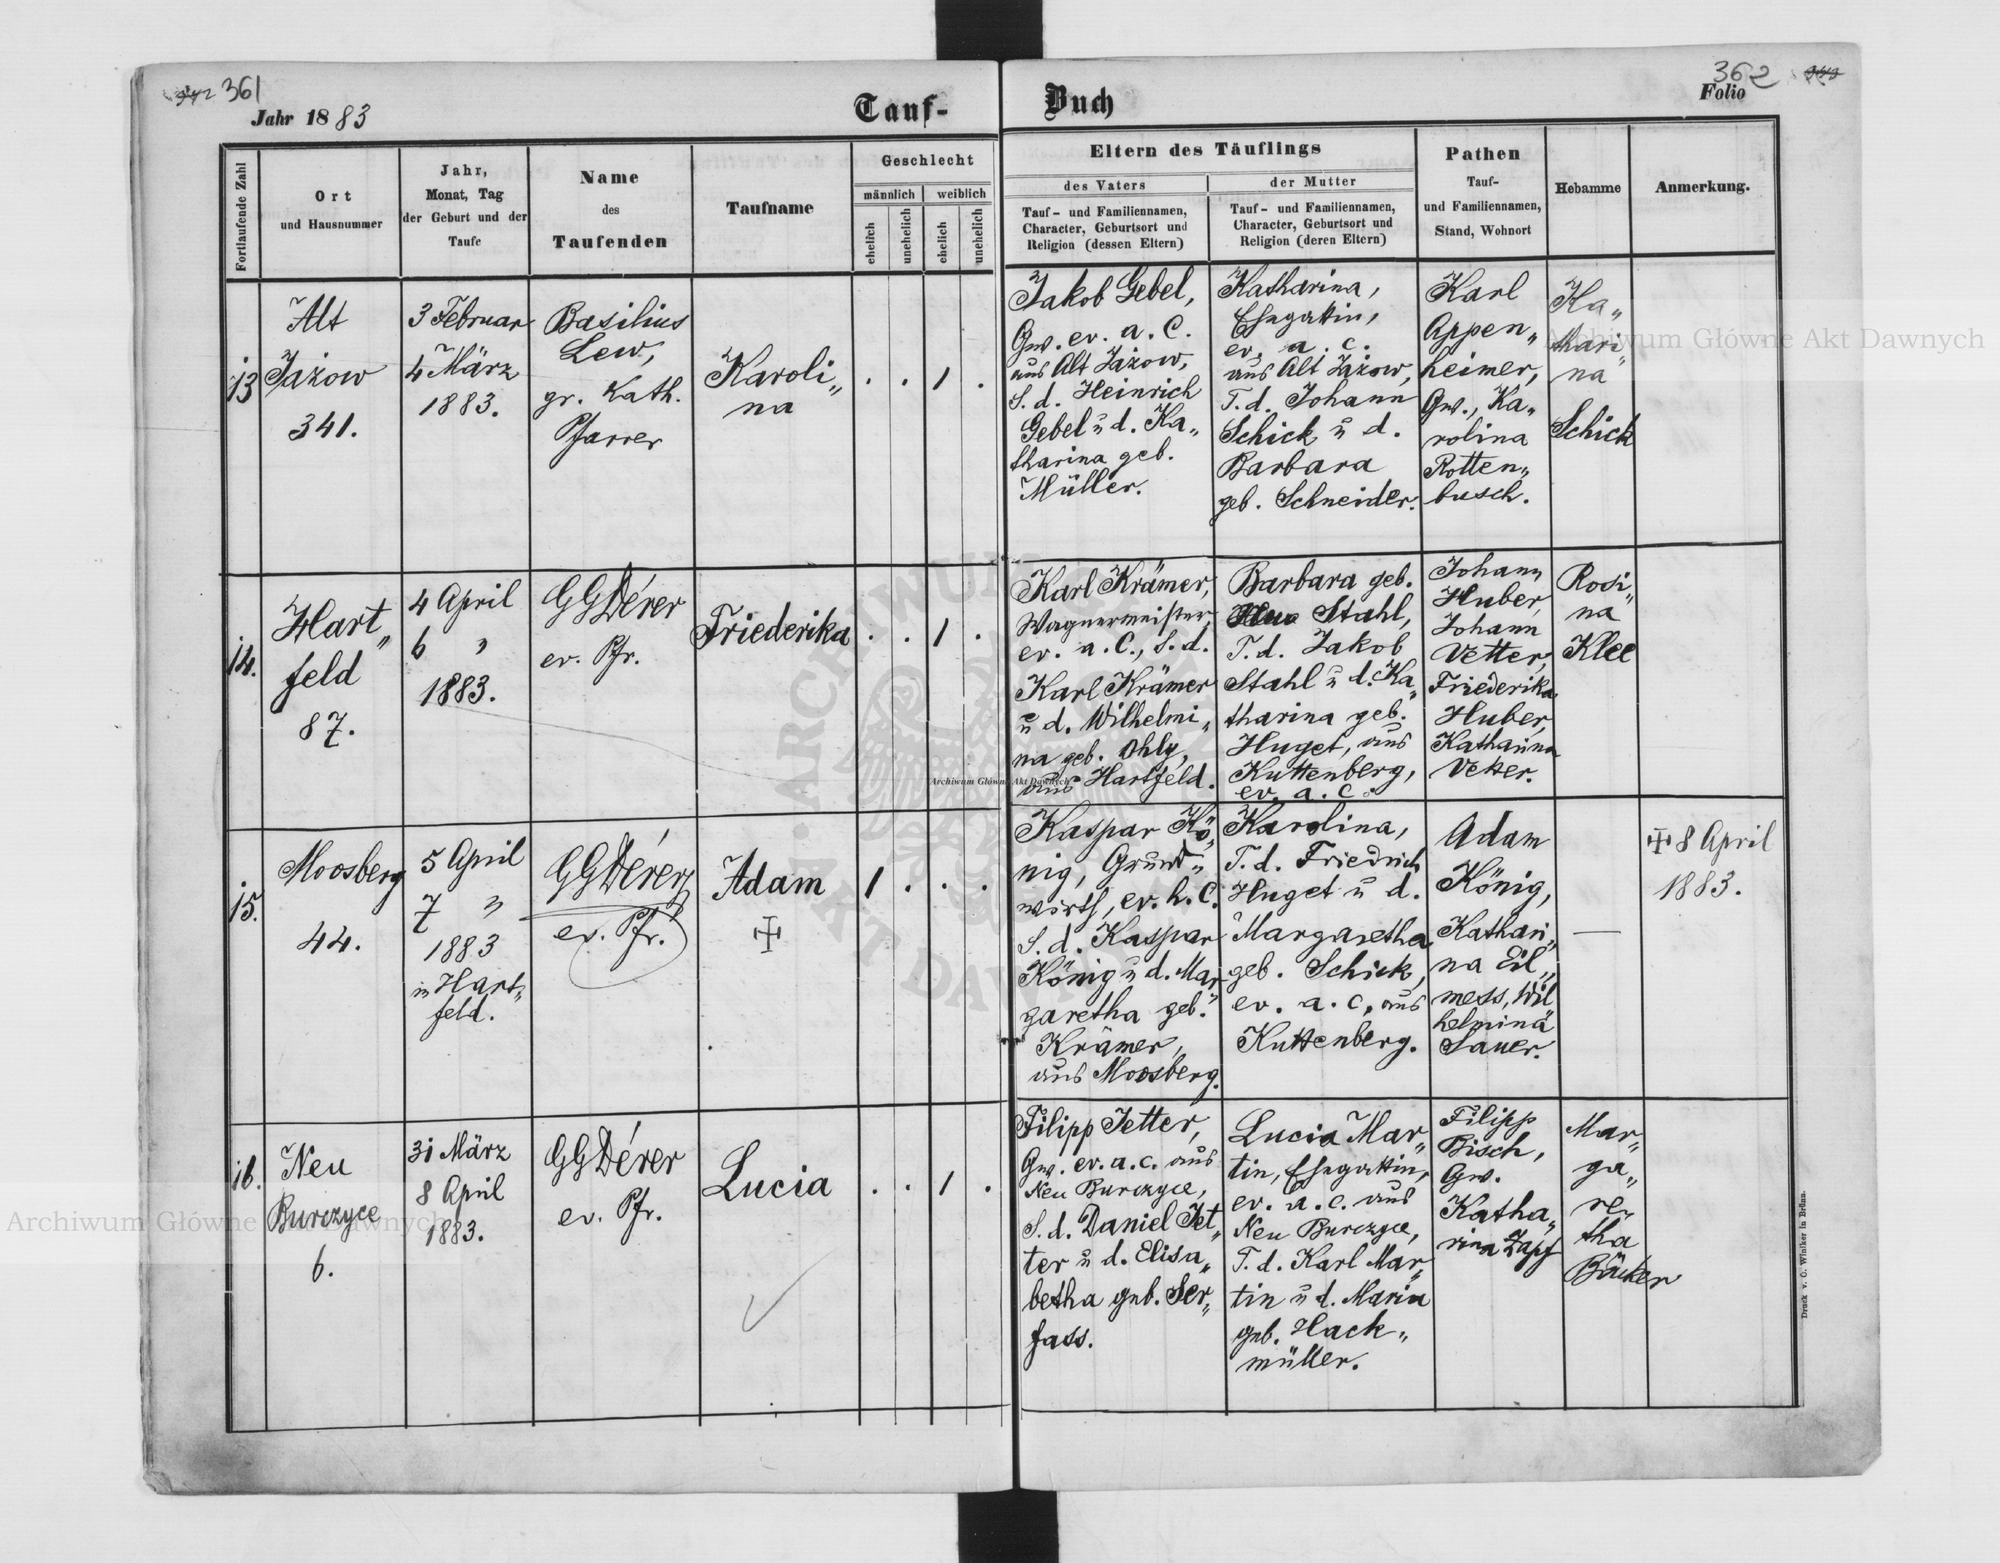 361
362
Jahr 1883
Tauf-
Buch
Folio
Fortlaufende Zahl
Ort
und Hausnummer
Jahr,
Monat, Tag
der Geburt und der
Taufe
Name
des
Taufenden
Taufname
Geschlecht
männlich
weiblich
ehelich
unehelich
ehelich
unehelich
Eltern des Täuflings
des Vaters
Tauf- und Familiennamen,
Character, Geburtsort und
Religion (dessen Eltern)
der Mutter
Tauf- und Familiennamen,
Character, Geburtsort und
Religion (deren Eltern)
Pathen
Tauf-
und Familiennamen,
Stand, Wohnort
Hebamme
Anmerkung.
13
Alt
Jażow
341.
3 Februar
4 März
1883.
Basilius
Lew,
gr. Kath.
Pfarrer
Karoli„
na
. . 1 .
Jakob Gebel,
Gw. ev. a. C.
aus Alt Jażow,
S. d. Heinrich
Gebel u d. Ka„
tharina geb.
Müller.
Katharina,
Ehegattin,
ev. a. c.
aus Alt Jażow,
T. d. Johann
Schick u d.
Barbara
geb. Schneider.
Karl
Appen„
heimer,
Gw., Ka„
rolina
Rotten„
busch.
Ka„
thari„
na
Schick
14.
Hart„
feld
87.
4 April
6 "
1883.
GGDérer
ev. Pfr.
Friederika
. . 1 .
Karl Krämer,
Wagnermeister,
ev. a. C., S. d.
Karl Krämer
u d. Wilhelmi„
na geb. Ohly,
aus Hartfeld.
Barbara geb.
Stahl,
T. d. Jakob
Stahl u d. Ka„
tharina geb.
Huget, aus
Kuttenberg,
ev. a. C.
Johann
Huber,
Johann
Vetter,
Friederika
Huber,
Katharina
Vetter.
Rosi„
na
Klee
15.
Moosberg
44.
5 April
7 "
1883
in Hart„
feld.
GGDérer
ev. Pfr.
Adam
1 . . .
Kaspar Kö„
nig, Grund„
wirth, ev. h. C.
S. d. Kaspar
König u d. Mar„
garetha geb.
Krämer,
aus Moosberg.
Karolina,
T. d. Friedrich
Huget u d.
Margaretha
geb. Schick,
ev. a. c. aus
Kuttenberg.
Adam
König,
Kathari„
na Eil„
mess, Wil„
helmina
Sauer.
—
8 April
1883.
16.
Neu
Burczyce
6.
31 März
8 April
1883.
GGDérer
ev. Pfr.
Lucia
. . 1 .
Filipp Jetter,
Gw. ev. a. c. aus
Neu Burczyce,
S. d. Daniel Jet„
ter u d. Elisa„
betha geb. Ser„
fass.
Lucia Mar„
tin, Ehegattin,
ev. a. c. aus
Neu Burczyce,
T. d. Karl Mar„
tin u d. Maria
geb. Hack„
müller.
Filipp
Bisch,
Gw.
Katha„
rina Zapf
Mar„
ga„
re„
tha
Bäcker
Druck v. C. Winiker in Brünn.
Archiwum Główne Akt Dawnych
Archiwum Główne Akt Dawnych
Archiwum Główne Akt Dawnych